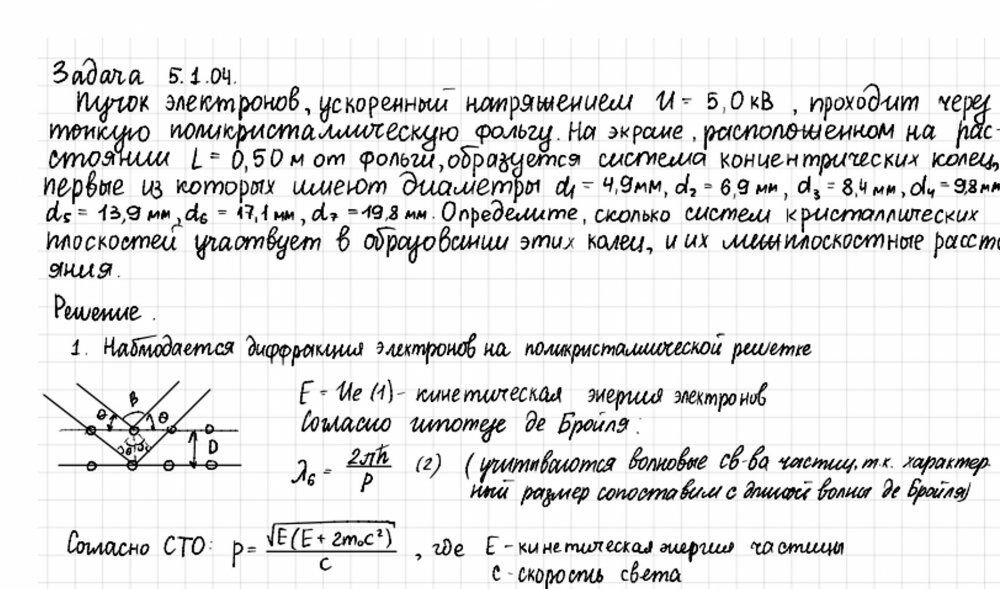 Задача 5.1.04.
Пучок электронов, ускоренный напряжением U = 5,0 кВ, проходит через
тонкую поликристаллическую фольгу. На экране, расположенном на рас-
стоянии L = 0,50 м от фольги, образуется система концентрических колец,
первые из которых имеют диаметры d₁ = 4,9мм, d₂ = 6,9 мм, d₃ = 8,4 мм, d₄ = 9,8мм
d₅ = 13,9 мм, d₆ = 17,1 мм, d₇ = 19,8 мм. Определите, сколько систем кристаллических
плоскостей участвует в образовании этих колец, и их межплоскостные рассто
яния.
Решение.
1. Наблюдается диффракция электронов на поликристаллической решетке
E = Ue (1) - кинетическая энергия электронов
Согласно гипотезе де Бройля:
β
θ θ
D
θ θ
λ_Б = 2πħ/p (2) (учитываются волновые св-ва частиц, т.к. характер
ный размер сопоставим с длиной волны де Бройля)
Согласно СТО: p = √(E(E + 2m₀c²))/c , где E - кинетическая энергия частицы
c - скорость света